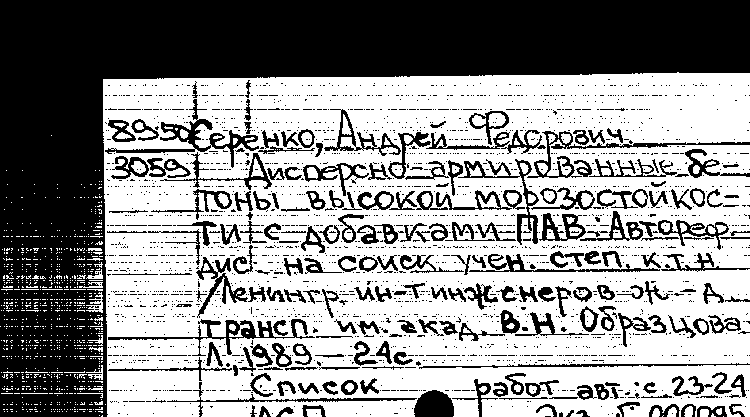 89-50 Серенко, Андрей Федорович.
3059 Дисперсно-армированные бе-
тоны высокой морозостойкос-
ти с добавками ПАВ: Автореф.
дис. на соиск. учен. степ. к.т.н.
/Ленингр. ин-т инженеров ж.-д.
трансп. им. акад. В.Н. Образцова.
Л., 1989. – 24с.
Список работ авт.: с. 23-24
ДСП Экз.